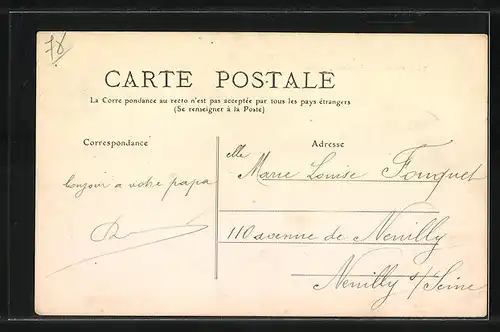 78
CARTE POSTALE
La Corre pondance au recto n'est pas acceptée par tous les pays étrangers
(Se renseigner à la Poste)
Correspondance
Adresse
bonjour a votre papa
elle Marie Louise Fouquet
110 avenue de Neuilly
Neuilly s/Seine